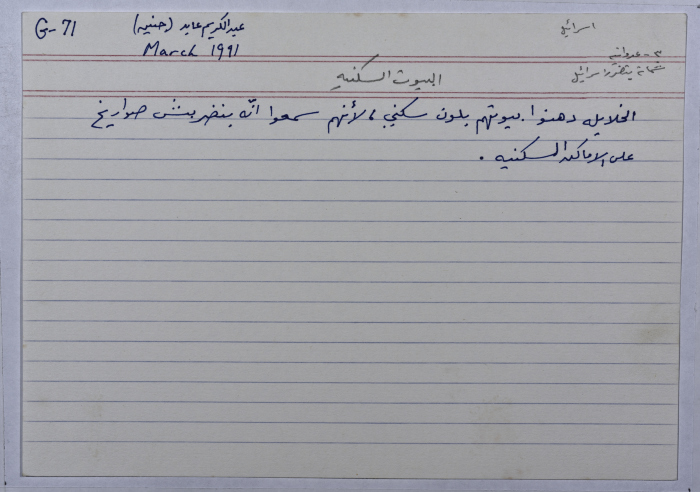 G-71
عبدالكريم عابد (حنيه)
March 1991
اسرائيل
٣- عدوانيه
شماته بتضرر اسرائيل
البيوت السكنيه
الخلايله دهنوا بيوتهم بلون سكني، لأنهم سمعوا انّه بنضربش صواريخ
على الاماكن السكنيه .